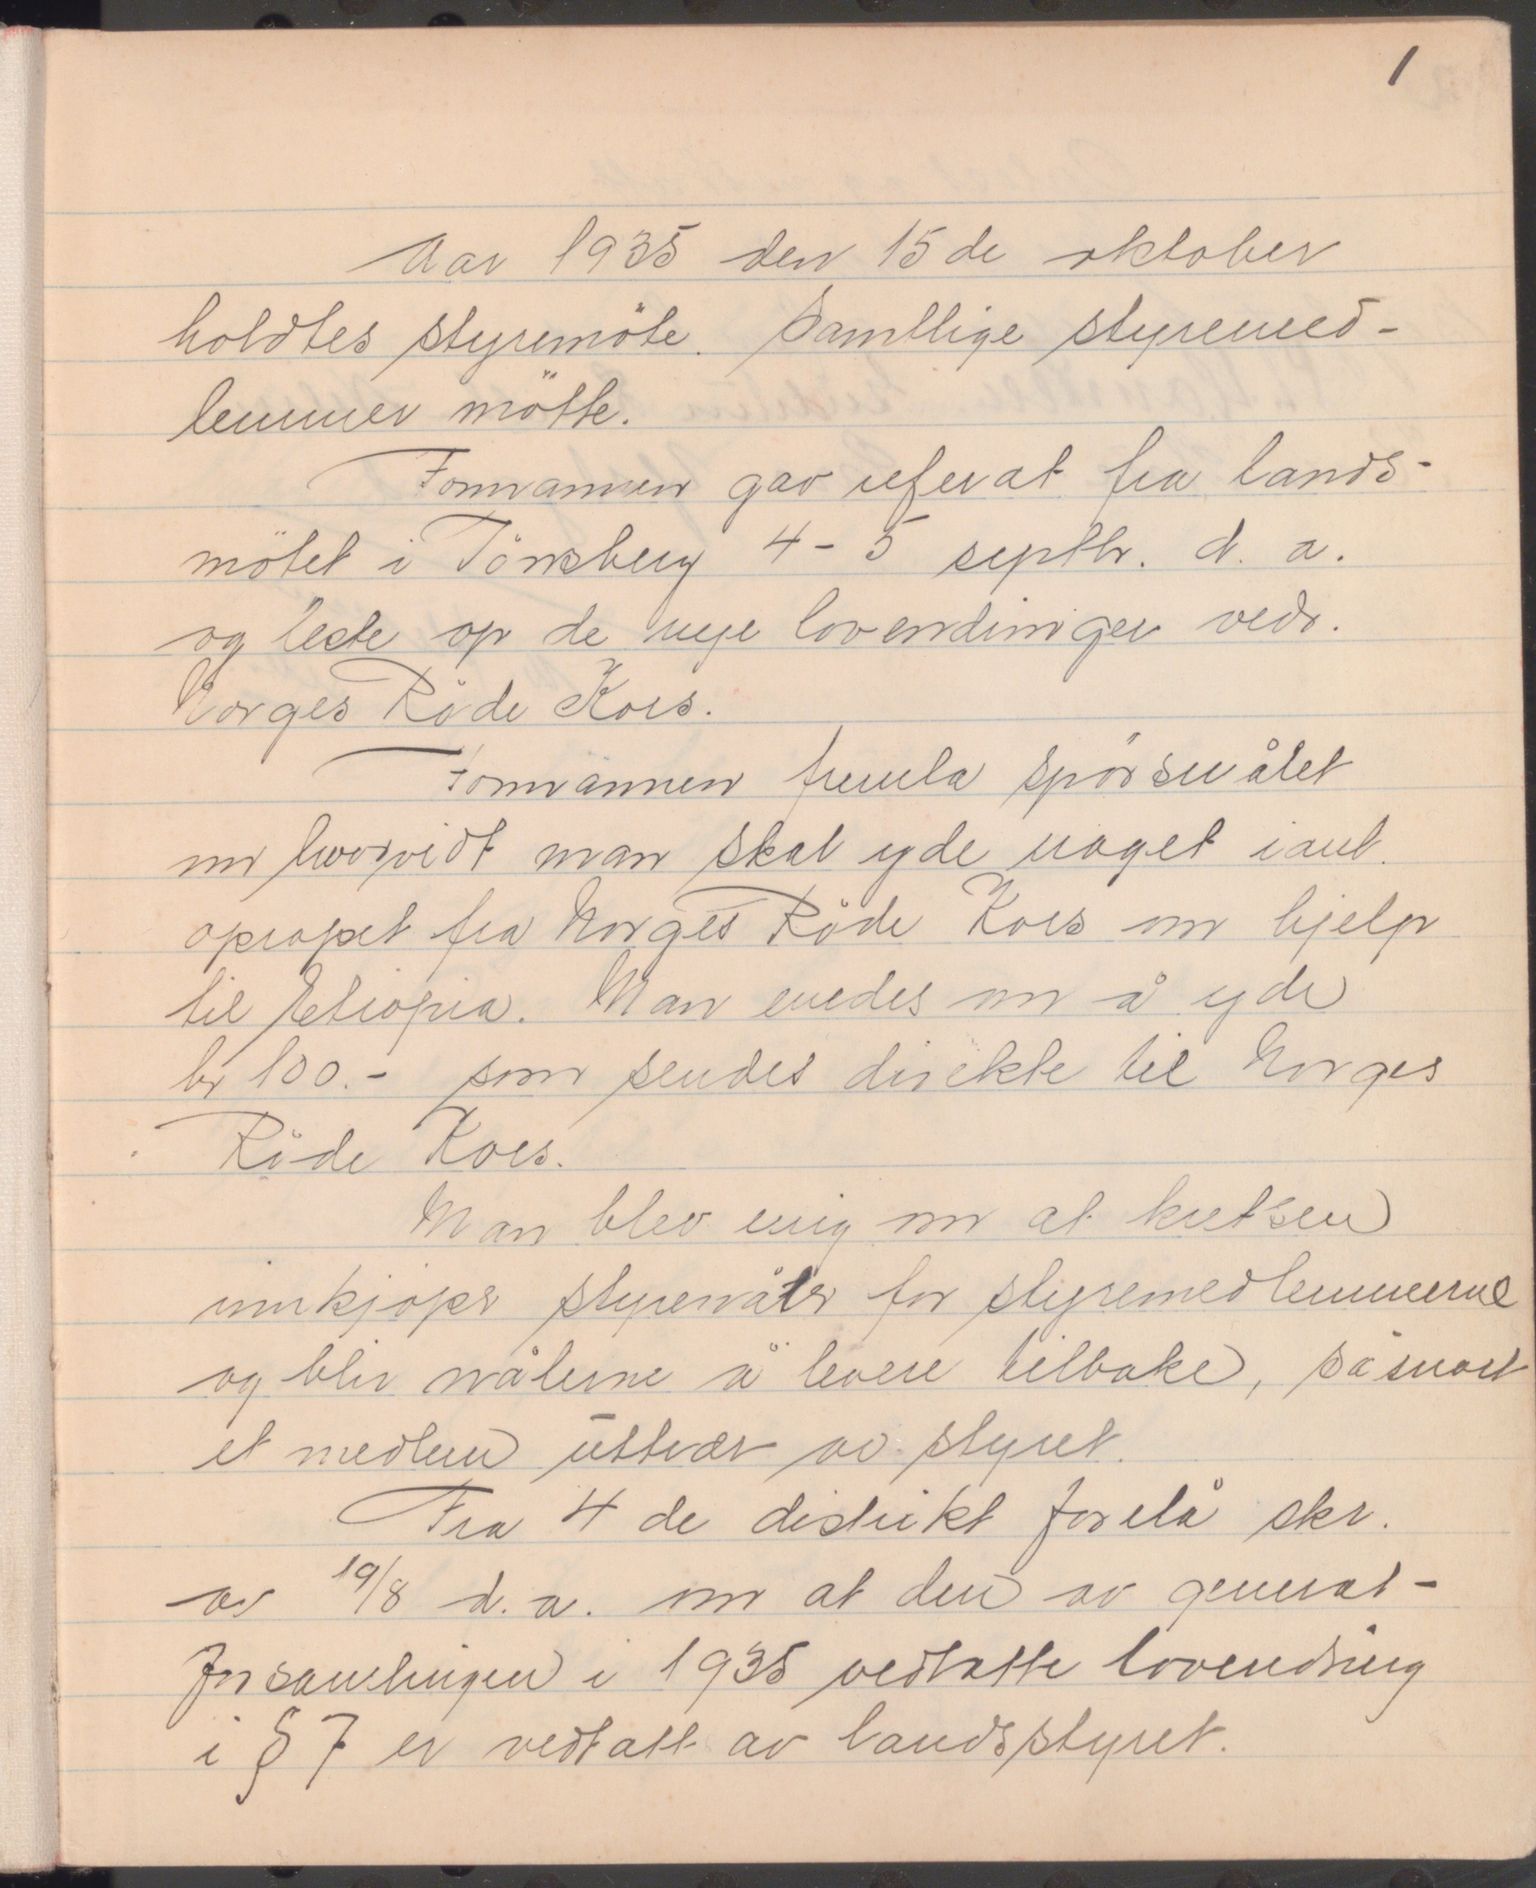 1
Aar 1935 den 15de oktober
holdtes styremöte. Samtlige styremed-
lemmer mötte.
Formannen gav referat fra lands-
mötet i Tönsberg 4-5 septbr. d. a.
og leste op de nye lovendringer vedr.
Norges Röde Kors.
Formannen fremla spörsmålet
om hvorvidt man skal yde noget i anl.
opropet fra Norges Röde Kors om hjelp
til Etiopia. Man enedes om å yde
kr 100.- som sendes direkte til Norges
Röde Kors.
Man blev enig om at kretsen
innkjöper styrenåler for styremedlemmerne
og blir nålerne å levere tilbake, såsnart
et medlem uttrær av styret.
Fra 4de distrikt forelå skr.
av 19/8 d. a. om at den av general-
forsamlingen i 1935 vedtatte lovendring
i § 7 er vedtatt av landsstyret.